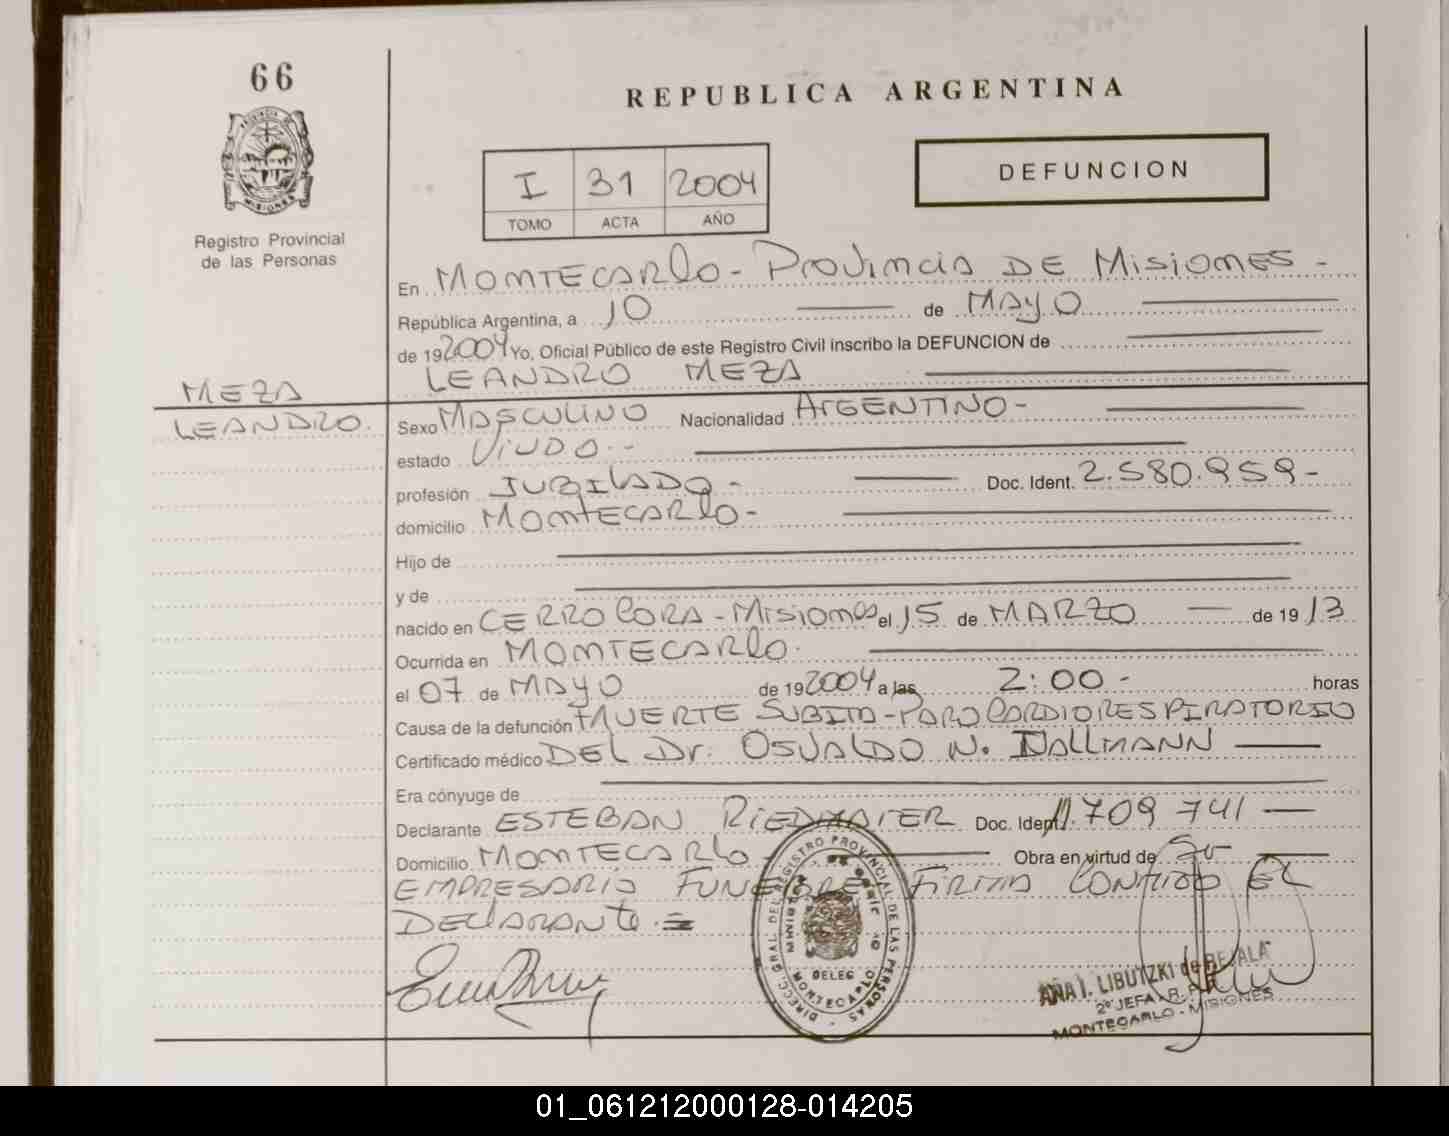 66
REPUBLICA ARGENTINA
PROVINCIA DE
MISIONES
Registro Provincial
de las Personas
I 31 2004
TOMO ACTA AÑO
DEFUNCION
En MONTECARLO - PROVINCIA DE MISIONES -
República Argentina, a 10 de MAYO
de 192004 Yo, Oficial Público de este Registro Civil inscribo la DEFUNCION de
LEANDRO MEZA
MEZA
LEANDRO.
Sexo MASCULINO Nacionalidad ARGENTINO -
estado VIUDO. -
profesión JUBILADO - Doc. Ident. 2.580.959 -
domicilio MONTECARLO -
Hijo de
y de
nacido en CERRO CORA - MISIONES el 15 de MARZO de 19 13
Ocurrida en MONTECARLO.
el 07 de MAYO de 192004 a las 2:00 - horas
Causa de la defunción MUERTE SUBITA - PARO CARDIORESPIRATORIO
Certificado médico DEL Dr. OSVALDO N.
Era cónyuge de
Declarante ESTEBAN RIEDMAIER Doc. Ident. 11.709 741
Domicilio MONTECARLO - Obra en virtud de Su
EMPRESARIO FUNEBRE FIRMA CONMIGO EL
DECLARANTE.=
DIRECC. GRAL. DEL REGISTRO PROVINCIAL DE LAS PERSONAS
DELEG
MONTECARLO
ANA I. LIBUTZKI de BEJALA
2º JEFA - R.
MONTECARLO - MISIONES
01_061212000128-014205